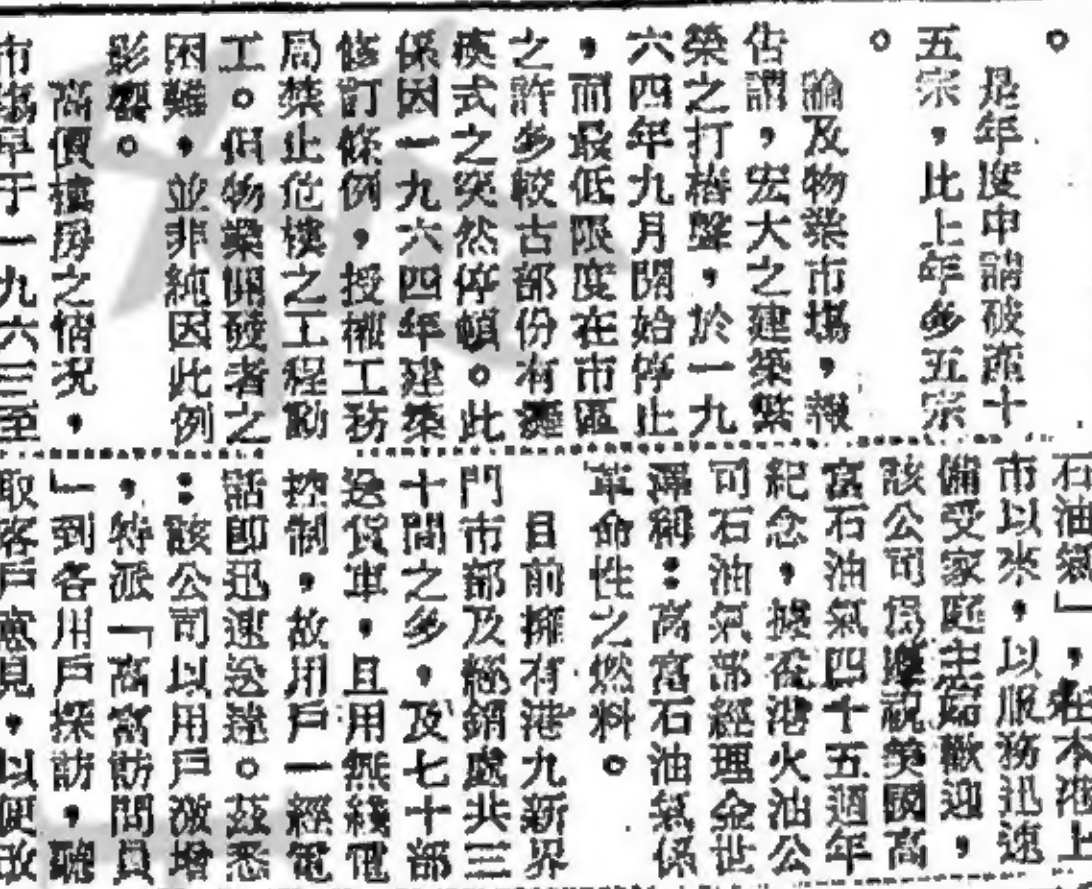 。
是年度申請破產十
五宗，比上年多五宗
。
論及物業市塲，報
告謂，宏大之建築繁
榮之打樁聲，於一九
六四年九月開始停止
，而最低限度在市區
之許多較古部份有癱
瘓式之突然停頓。此
係因一九六四年建築
修訂條例，授權工務
局禁止危樓之工程動
工。但物業開發者之
困難，並非純因此例
影響。
高價樓房之情況，
市塲早于一九六三至
石油氣」，在本港上
市以來，以服務迅速
備受家庭主婦歡迎，
該公司爲慶祝英國高
富石油氣四十五週年
紀念，據香港火油公
司石油氣部經理金世
澤稱：高富石油氣係
革命性之燃料。
目前擁有港九新界
門市部及經銷處共三
十間之多，及七十部
送貨車，且用無綫電
控制，故用戶一經電
話即迅速送達。茲悉
：該公司以用戶激增
，特派「高富訪問員
」到各用戶探訪，聽
取客戶意見，以便改